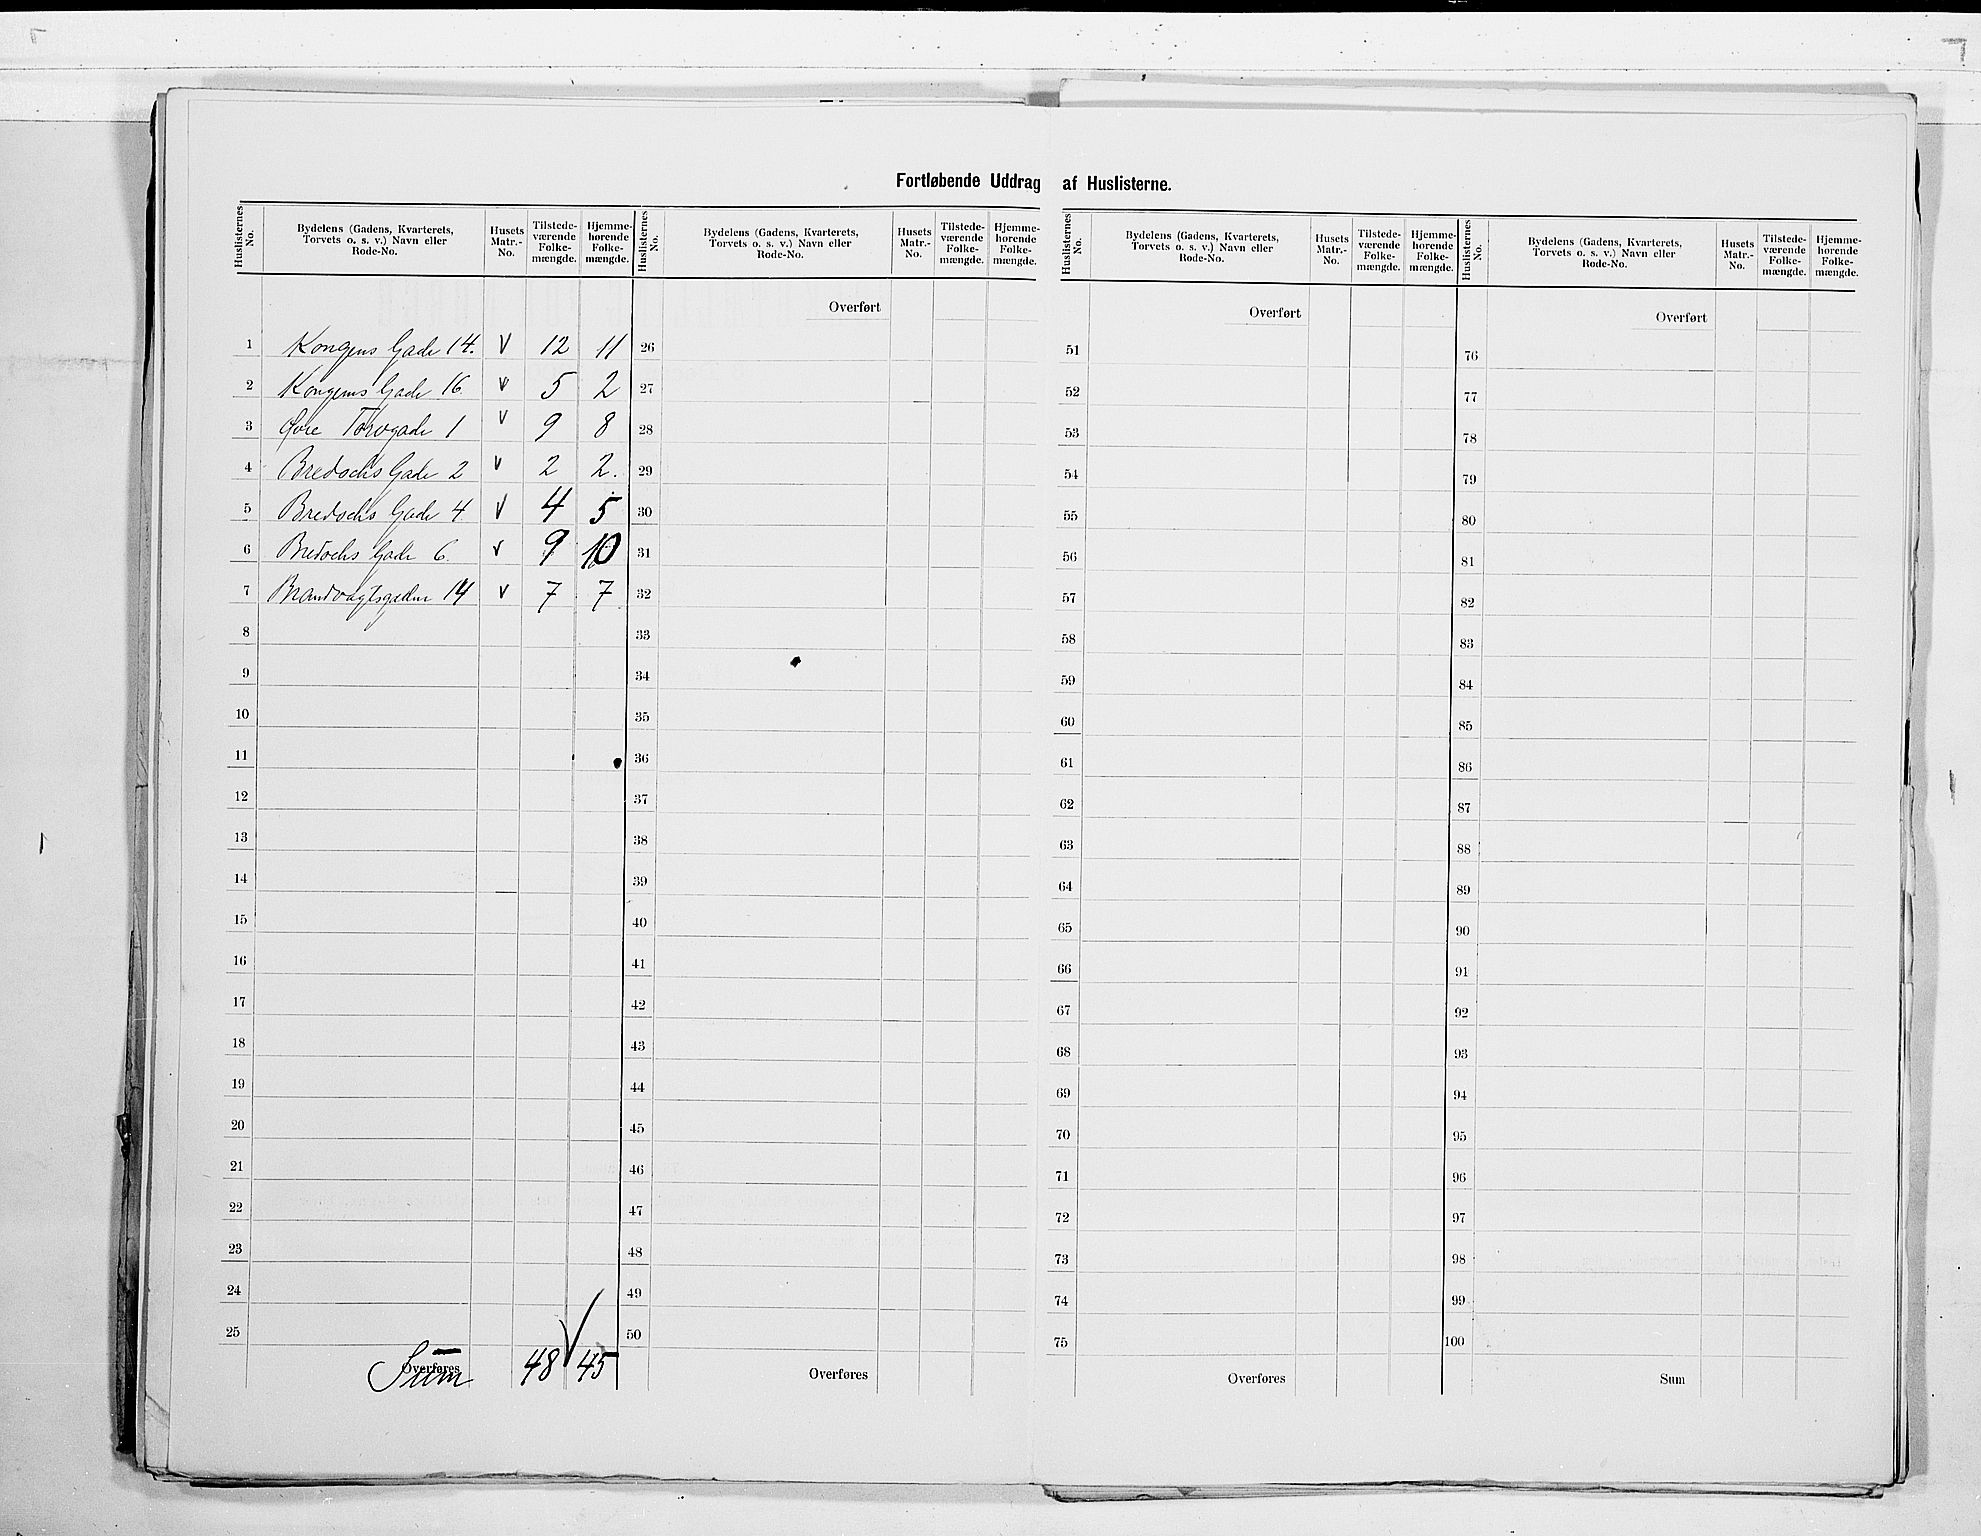 Fortløbende Uddrag af Huslisterne.
Huslisternes No. | Bydelens (Gadens, Kvarterets, Torvets o. s. v.) Navn eller Rode-No. | Husets Matr.-No. | Tilstede-værende Folke-mængde. | Hjemme-hørende Folke-mængde.
1 Kongens Gade 14. V 12 11
2 Kongens Gade 16. V 5 2
3 Øvre Torvgade 1 V 9 8
4 Bredochs Gade 2 V 2 2.
5 Bredochs Gade 4 V 4 5
6 Bredochs Gade 6. V 9 10
7 Brandvagtsgaden 14 V 7 7
8
9
10
11
12
13
14
15
16
17
18
19
20
21
22
23
24
25
Overføres Sum 48 V 45
Huslisternes No. | Bydelens (Gadens, Kvarterets, Torvets o. s. v.) Navn eller Rode-No. | Husets Matr.-No. | Tilstede-værende Folke-mængde. | Hjemme-hørende Folke-mængde.
Overført
26
27
28
29
30
31
32
33
34
35
36
37
38
39
40
41
42
43
44
45
46
47
48
49
50
Overføres
Huslisternes No. | Bydelens (Gadens, Kvarterets, Torvets o. s. v.) Navn eller Rode-No. | Husets Matr.-No. | Tilstede-værende Folke-mængde. | Hjemme-hørende Folke-mængde.
Overført
51
52
53
54
55
56
57
58
59
60
61
62
63
64
65
66
67
68
69
70
71
72
73
74
75
Overføres
Huslisternes No. | Bydelens (Gadens, Kvarterets, Torvets o. s. v.) Navn eller Rode-No. | Husets Matr.-No. | Tilstede-værende Folke-mængde. | Hjemme-hørende Folke-mængde.
Overført
76
77
78
79
80
81
82
83
84
85
86
87
88
89
90
91
92
93
94
95
96
97
98
99
100
Sum